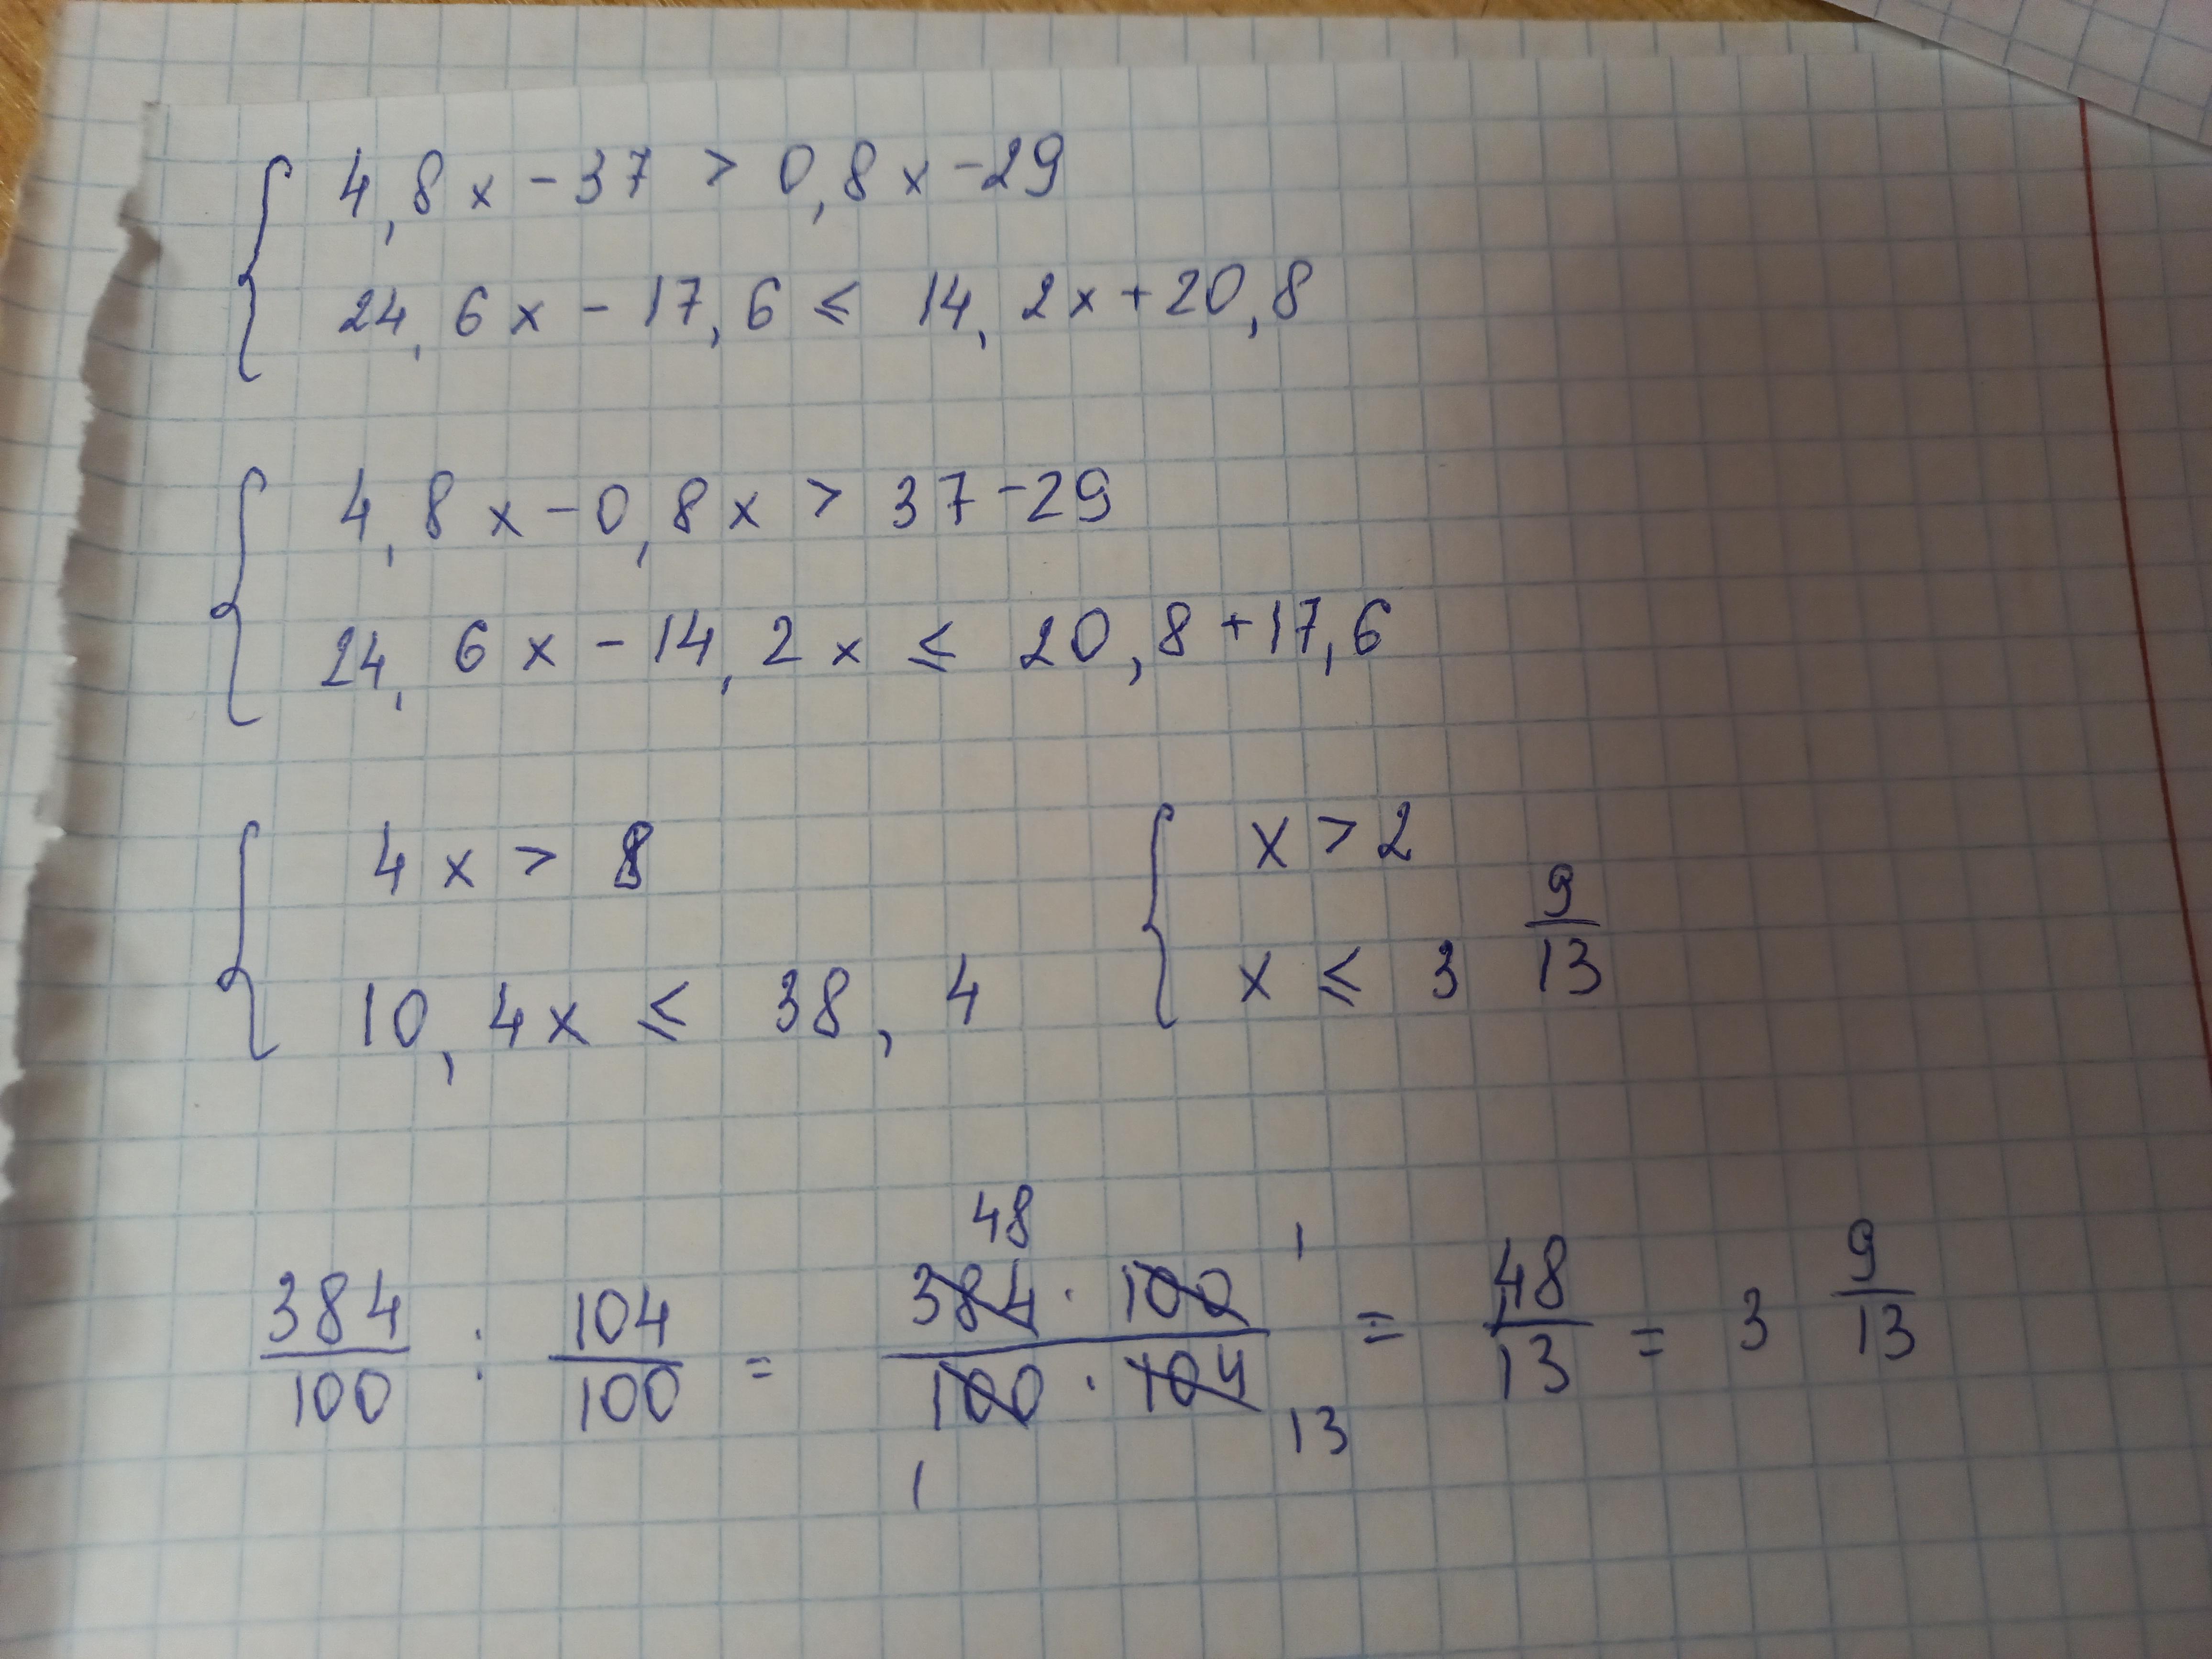 { 4,8x - 37 > 0,8x - 29
24,6x - 17,6 ≤ 14,2x + 20,8
{ 4,8x - 0,8x > 37 - 29
24,6x - 14,2x ≤ 20,8 + 17,6
{ 4x > 8
10,4x ≤ 38,4
{ x > 2
x ≤ 3 9/13
384/100 : 104/100 = 48 384 · 100 1 / 1 100 · 104 13 = 48/13 = 3 9/13